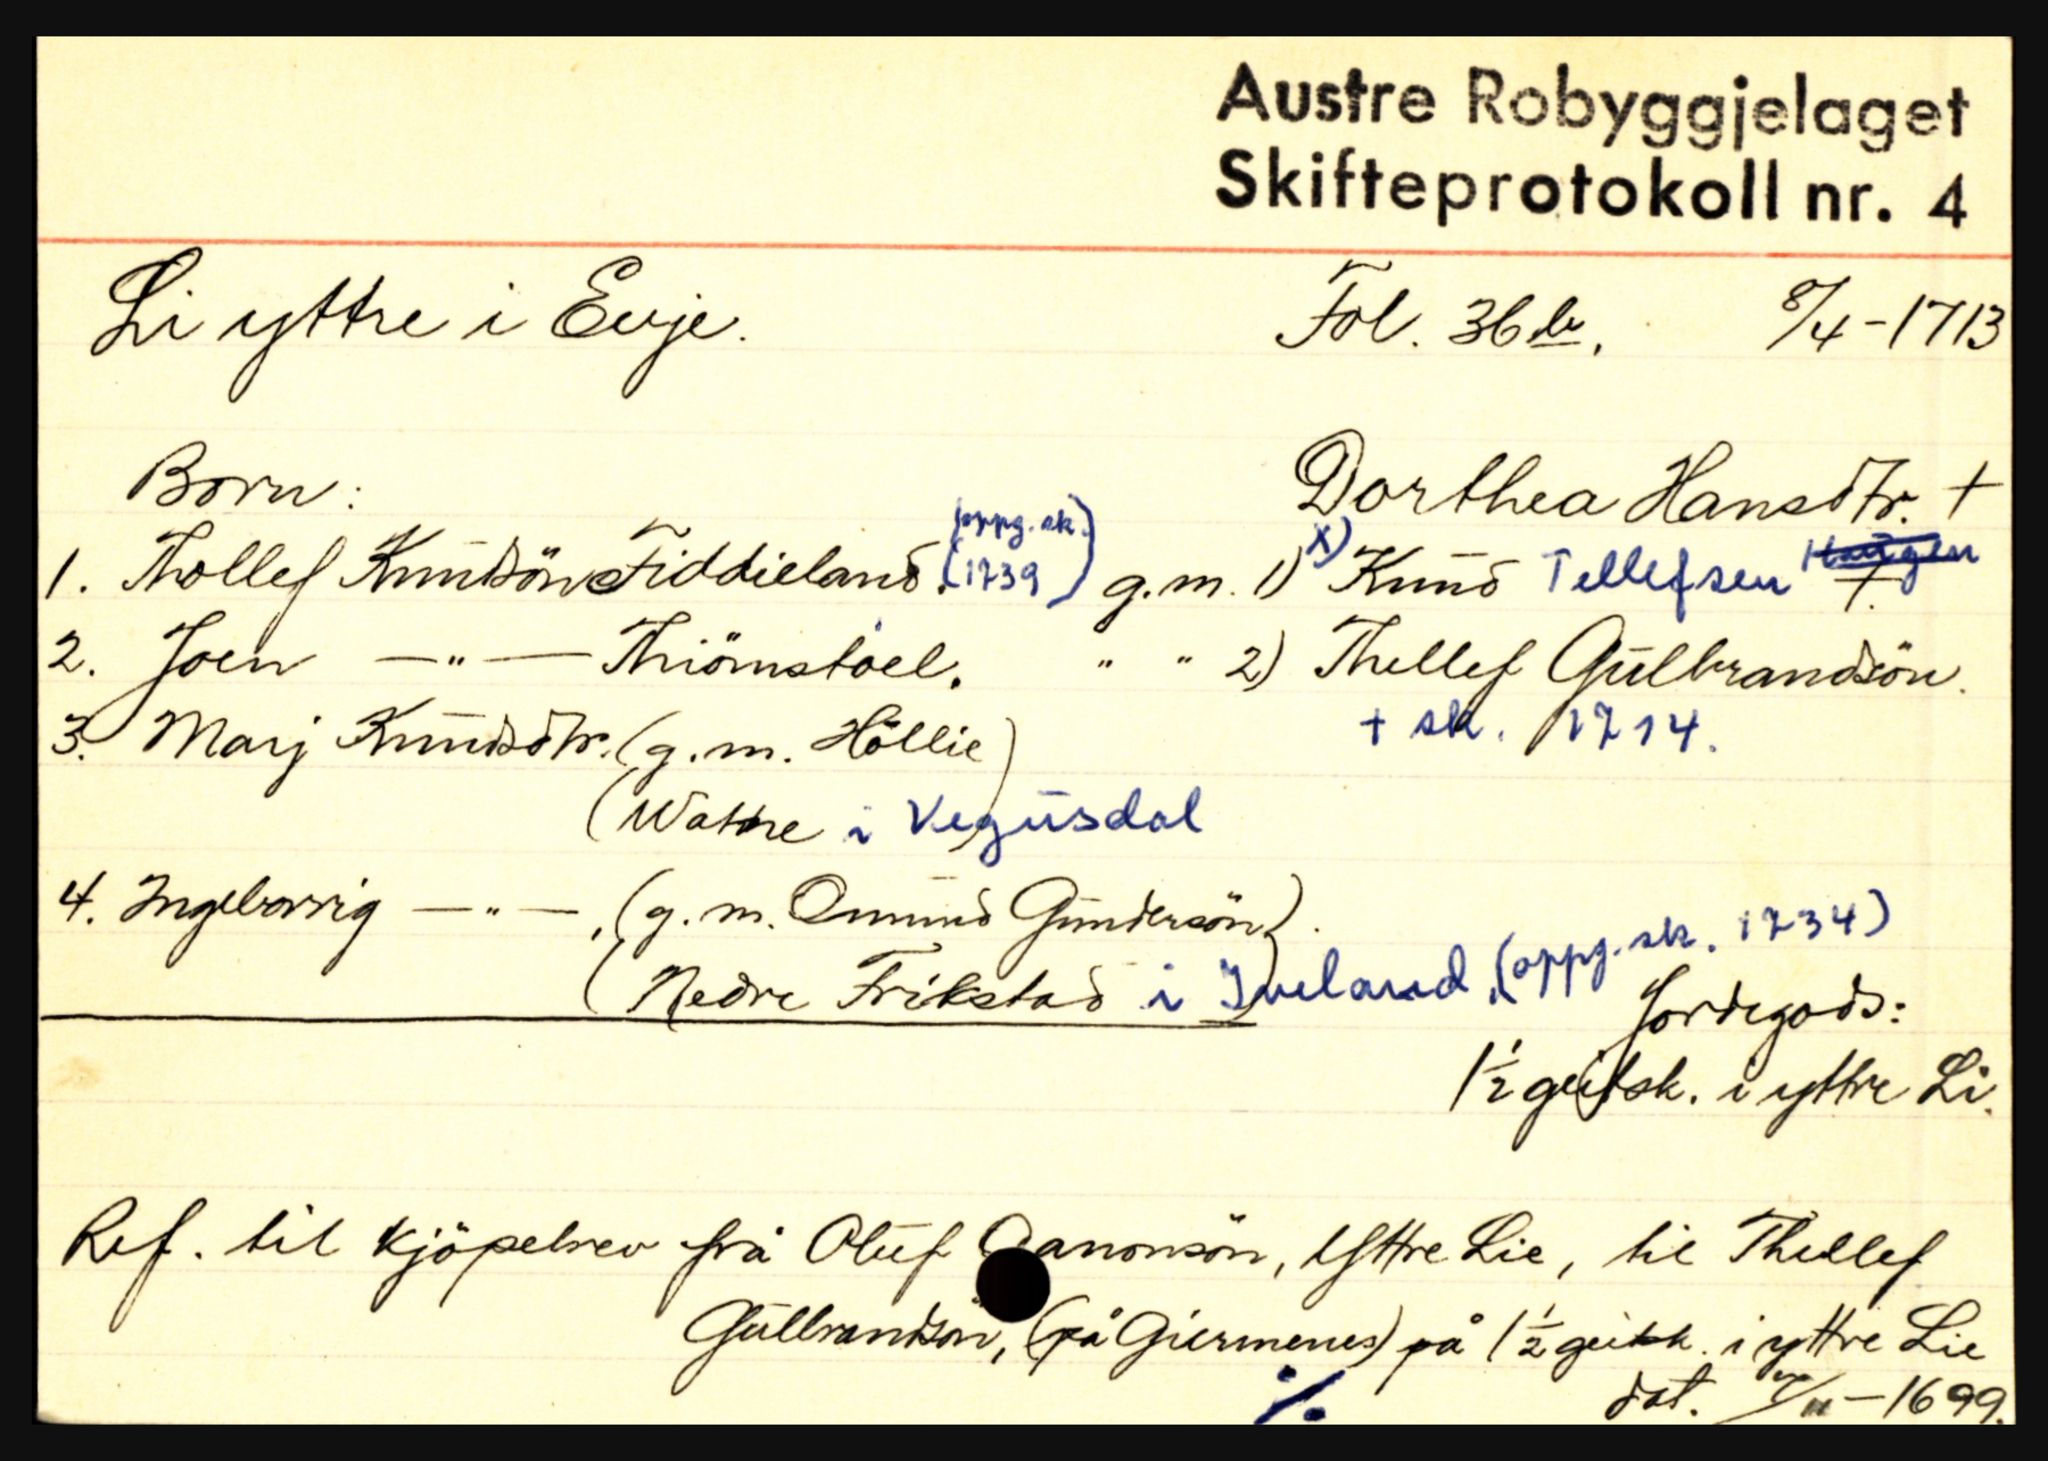 Austre Robyggjelaget
Skifteprotokoll nr. 4
Li yttre i Evje. Fol. 36 b. 8/4-1713
Born: Dorthea Hansdtr. +
1. Thollef Knudsön Fiddieland. (oppg. sk. 1739) g.m. 1) x) Knud Tellefsen Haugen +.
2. Joen —"— Thiömstoel. " " 2) Thellef Gulbrandsön.
3. Marj Knudsdtr. (g.m. Höllie) + sk. 1714.
(Watne i Vegusdal
4. Ingeborrig —"—, (g.m. Omund Gundersön).
(Nedre Frikstad) i Iveland, (oppg. sk. 1734)
Jordegods:
1½ geitsk. i yttre Li.
Ref. til kjöpebrev frå Oluf Aanonsön, Yttre Lie, til Thellef
Gulbrandsön, (på Giermenes) på 1½ geitsk. i yttre Lie
dat. /11-1699.
./.